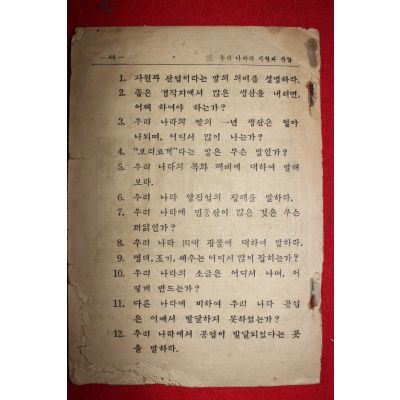 — 64 — 三 우리 나라의 자원과 산업
1. 자원과 산업이라는 말의 의미를 설명하라.
2. 좁은 경작지에서 많은 생산을 내려면,
어찌 하여야 하는가?
3. 우리 나라의 쌀의 一년 생산은 얼마
나되며, 어디서 많이 나는가?
4. "보리고개"라는 말은 무슨 말인가?
5. 우리 나라의 목화 재배에 대하여 말해
보라.
6. 우리 나라 양잠업의 장래를 말하라.
7. 우리 나라에 민둥산이 많은 것은 무슨
까닭인가?
8. 우리 나라 四대 광물에 대하여 말하라.
9. 명태, 조기, 새우는 어디서 많이 잡히는가?
10. 우리 나라의 소금은 어디서 나며, 어
떻게 만드는가?
11. 다른 나라에 비하여 우리 나라 공업
은 어째서 발달하지 못하였는가?
12. 우리 나라에서 공업이 발달되었다는 곳
을 말하라.